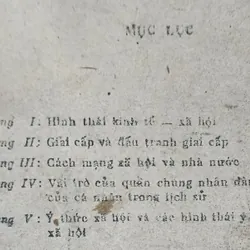 MỤC LỤC
ng I: Hình thái kinh tế — xã hội
ng II: Giai cấp và đấu tranh giai cấp
ng III: Cách mạng xã hội và nhà nước
ng IV: Vai trò của quần chúng nhân dân
của cá nhân trong lịch sử
ng V: Ý thức xã hội và các hình thái ý
xã hội